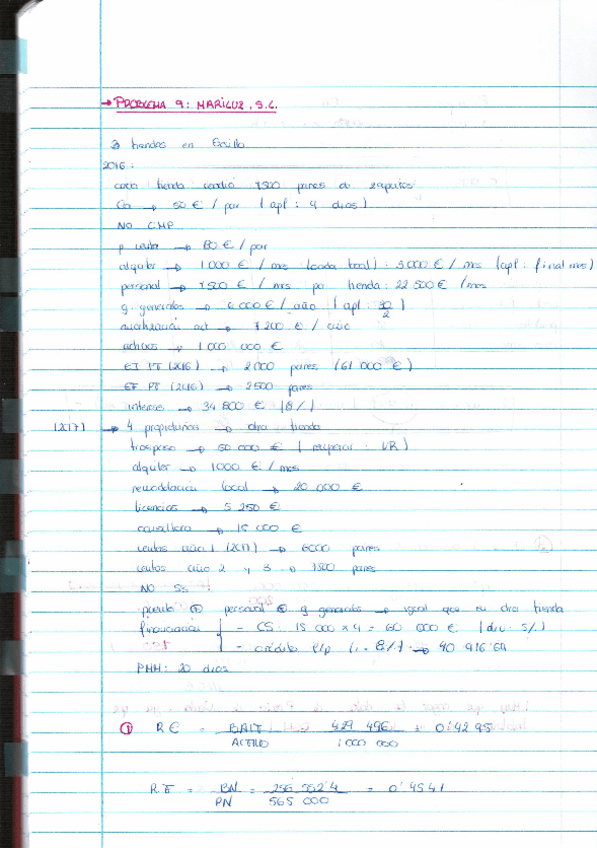 → PROBLEMA 9: MARILUZ, S.L.
3 tiendas en Sevilla
2016:
cada tienda vendió 7500 pares de zapatos
→ 50 € / par (apl: 4 días)
NO CMP
p venta → 80 € / par
alquiler → 1000 € / mes (cada local): 3000 € / mes (apl: final mes)
personal → 7500 € / mes por tienda: 22 500 € / mes
g. generales → 6000 € / año (apl: 30/2)
amortización act → 7200 € / año
activos → 1 000 000 €
EI PT (2016) → 2000 pares (61 000 €)
EF PT (2016) → 2500 pares
intereses → 34 800 € (8%)
(2017) → 4 propietarios → otra tienda
traspaso → 60 000 € (recuperar: VR)
alquiler → 1000 € / mes
remodelación local → 20 000 €
licencias → 5 250 €
consultora → 15 000 €
ventas año 1 (2017) → 6000 pares
ventas año 2 y 3 → 7500 pares
NO SS
personal g generales → igual que su otra tienda
financiación { - CS: 15 000 x 4 = 60 000 € (div: 5%)
- crédito l/p (i = 8%) → 40 916'64
PMM: 20 días
① RE = BAIT / ACTIVO = 429 496 / 1 000 000 = 0'4295
RF = BN / PN = 256 552'4 / 565 000 = 0'4541